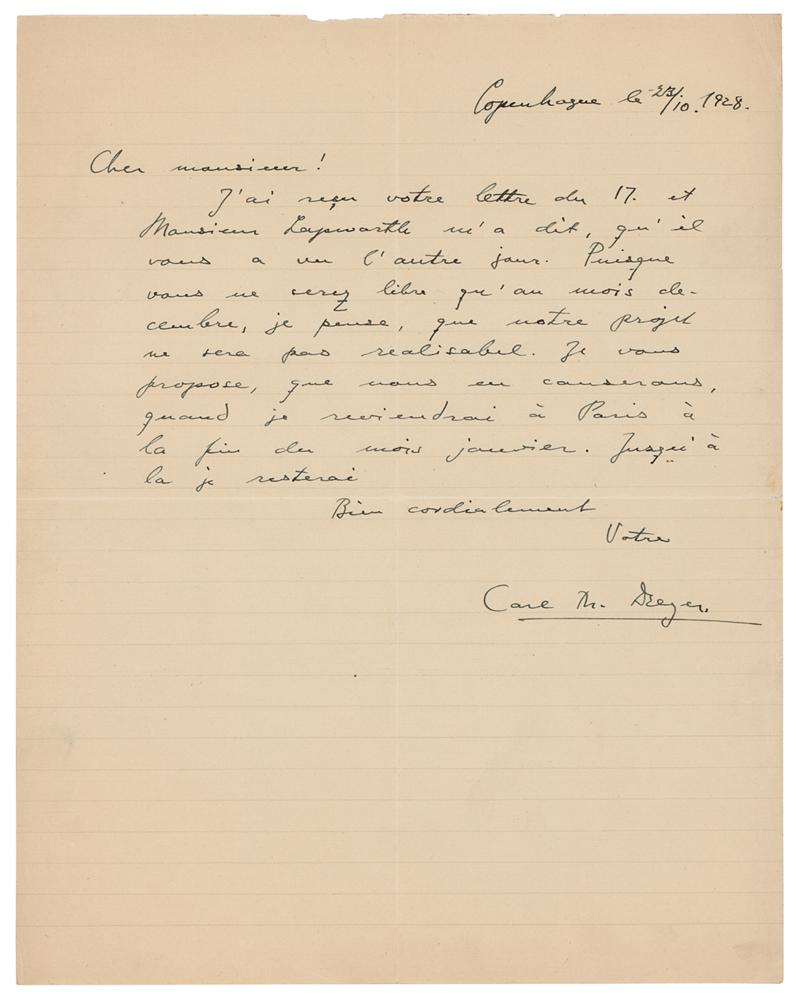 Copenhague le 23/10. 1928.
Cher monsieur!
J'ai reçu votre lettre du 17. et
Monsieur Lapworth m'a dit, qu'il
vous a vu l'autre jour. Puisque
vous ne serez libre qu'au mois de-
cembre, je pense, que notre projet
ne sera pas realisabel. Je vous
propose, que nous en causerons,
quand je reviendrai à Paris à
la fin du mois janvier. Jusqu'à
la je resterai
Bien cordialement
Votre
Carl Th. Dreyer.